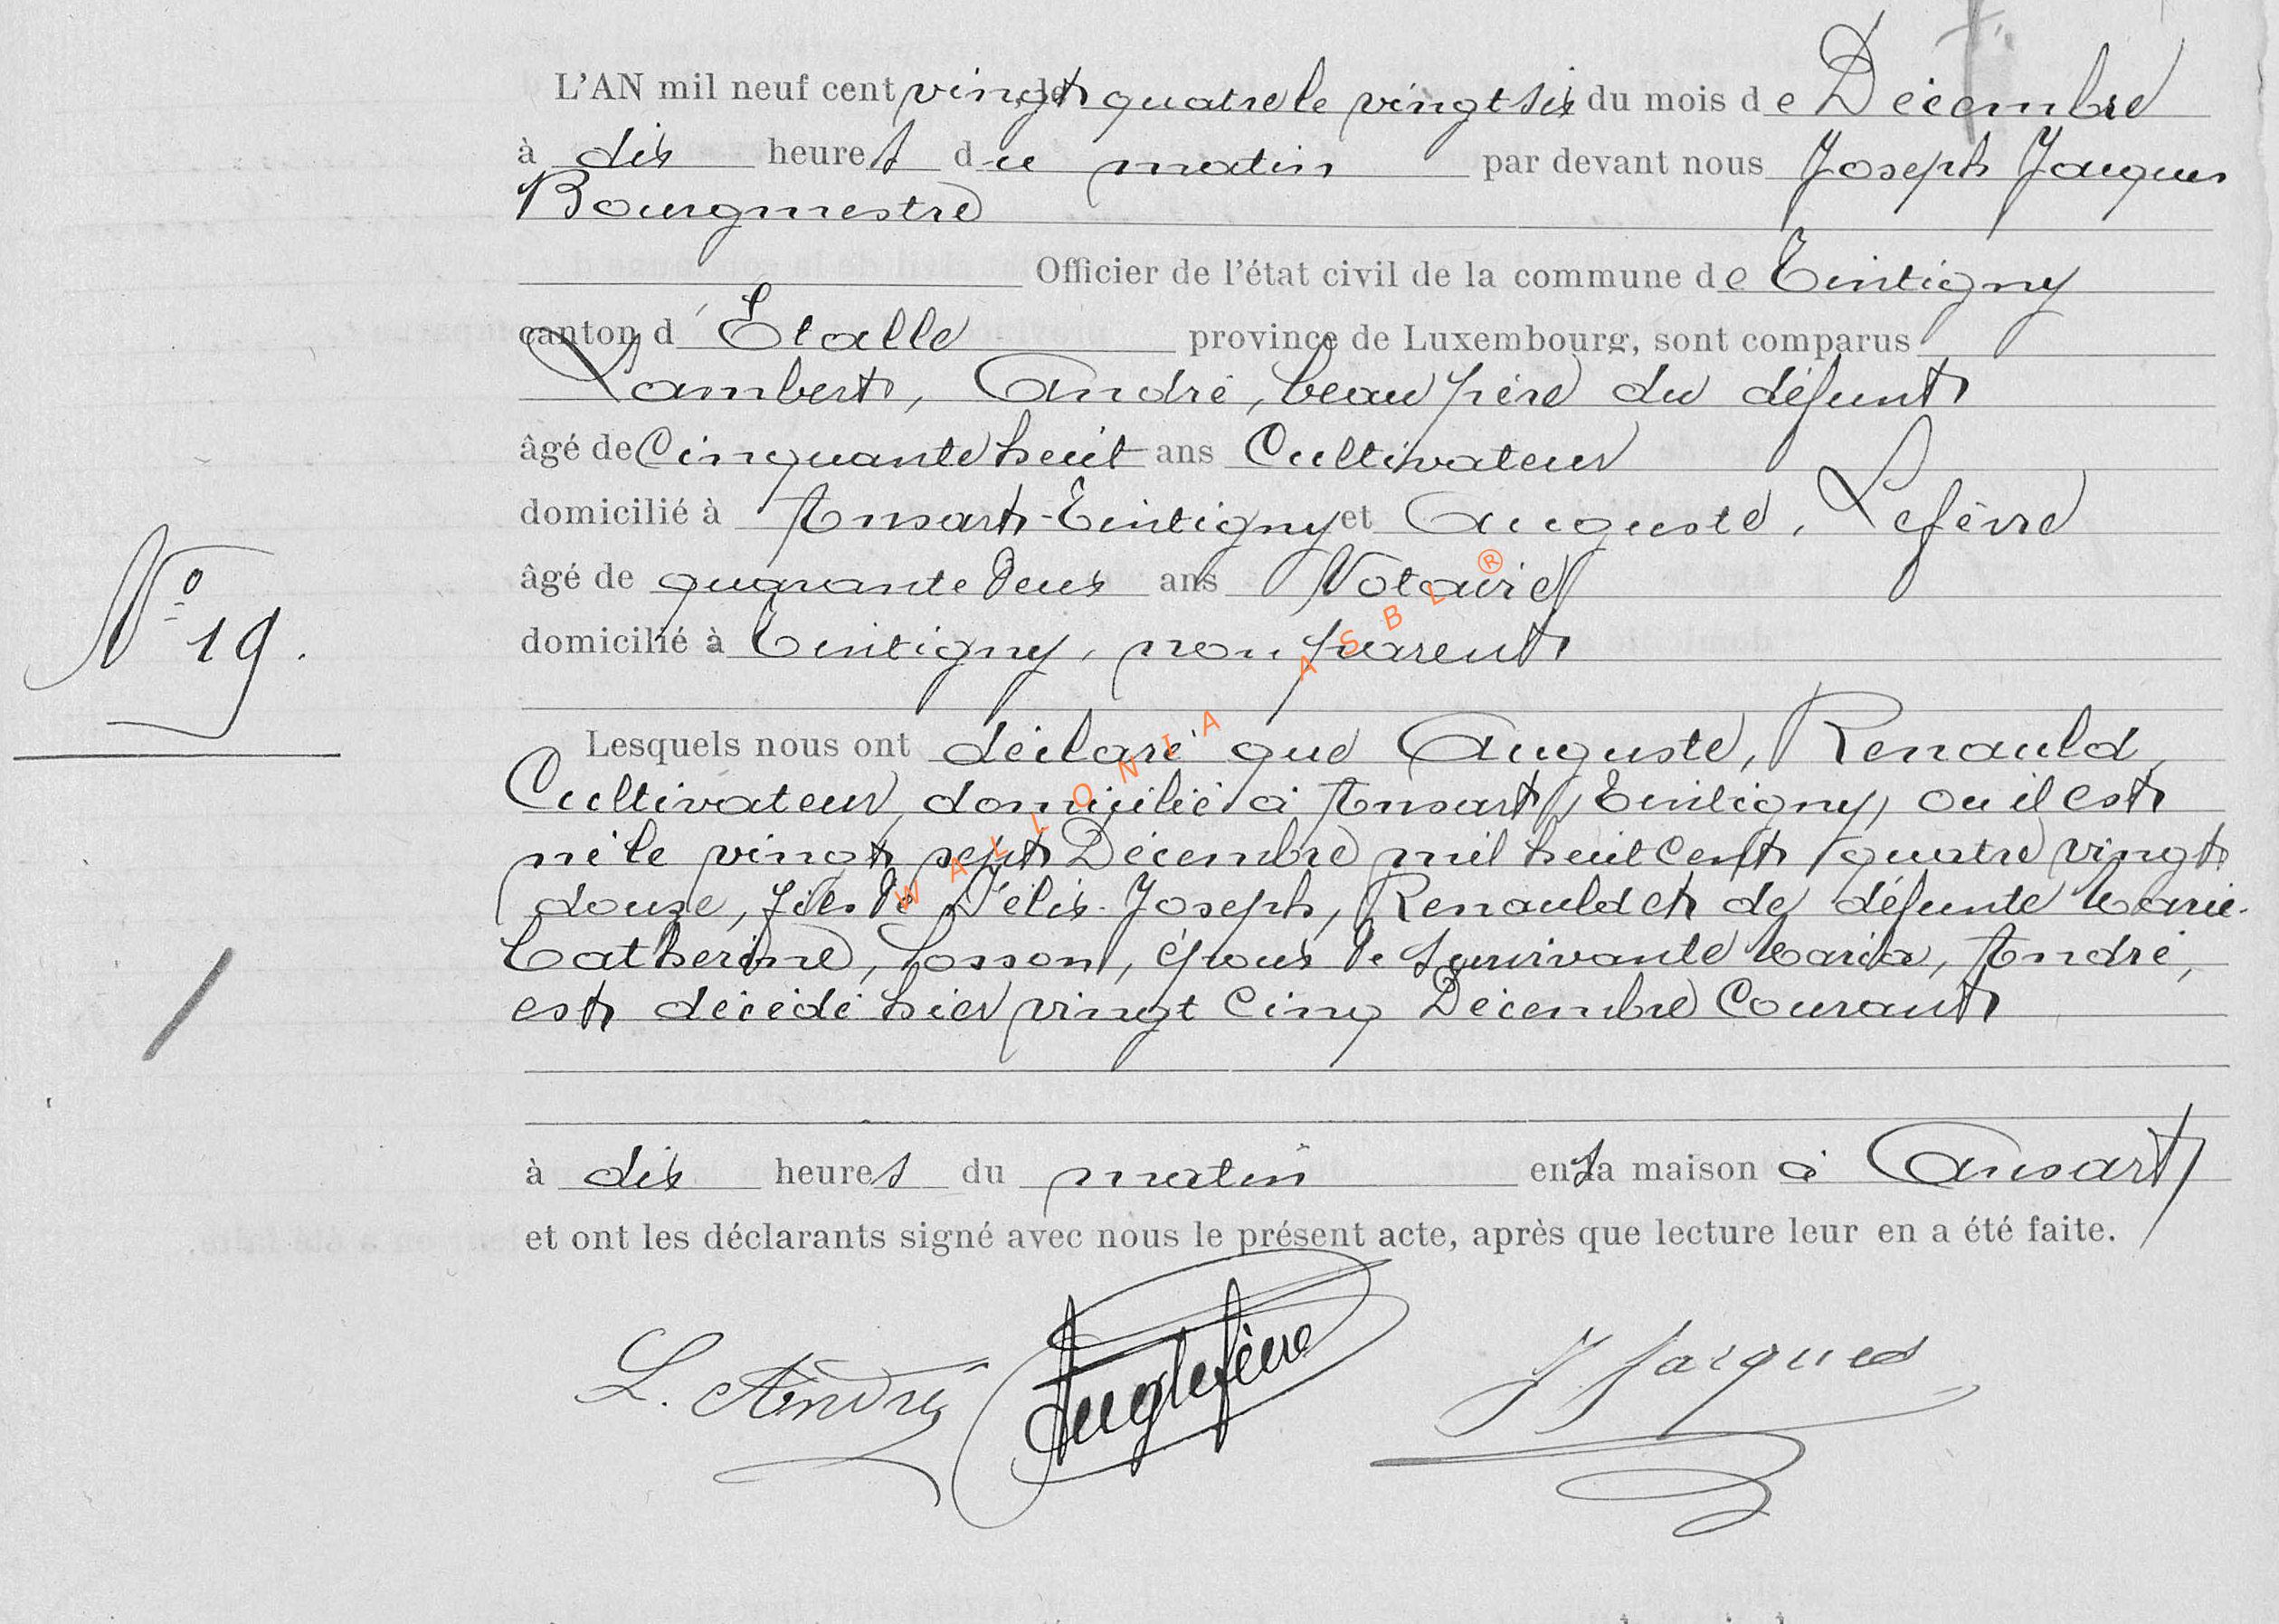 L'AN mil neuf cent vingt quatre le vingt six du mois de Décembre
à dix heures du matin par devant nous Joseph Jacques
Bourgmestre
Officier de l'état civil de la commune de Tintigny
canton d'Etalle province de Luxembourg, sont comparus
Lambert, André, beau père du défunt
âgé de Cinquante huit ans Cultivateur
domicilié à Ansart-Tintigny et Auguste, Lefèvre
âgé de quarante deux ans Notaire
domicilié à Tintigny, non parent
N° 19.
Lesquels nous ont déclaré que Auguste, Renauld,
Cultivateur, domicilié à Ansart, Tintigny, ou il est
né le vingt sept Décembre mil huit cent quatre vingt
douze, fils de Félix-Joseph, Renauld et de défunte Marie-
Catherine, Losson, époux de survivante Maria, André,
est décédé hier vingt cinq Décembre Courant
à dix heures du matin en sa maison à Ansart
et ont les déclarants signé avec nous le présent acte, après que lecture leur en a été faite.
L. André Aug Lefèvre J Jacques
WALLONIA ASBL ®